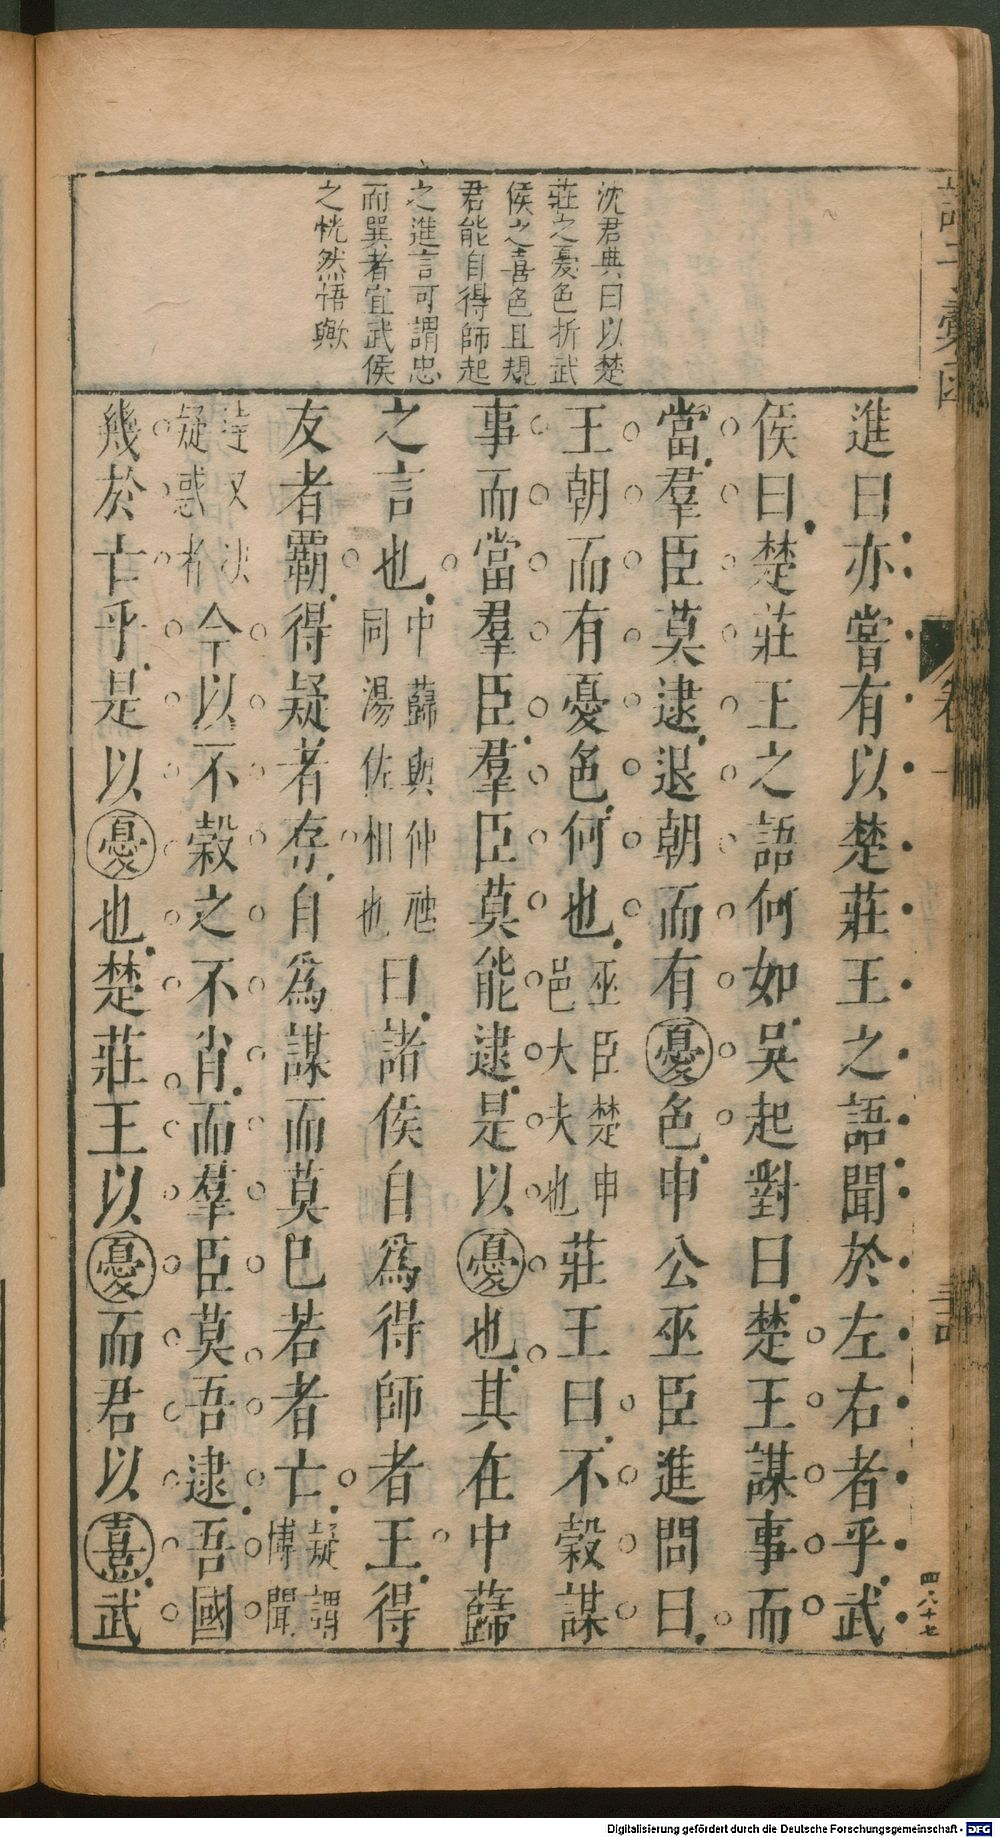 沈君典曰以楚
莊之憂色折武
侯之喜色且規
君能自得師起
之進言可謂忠
而巽者宜武侯
之恍然悟歟
進曰亦嘗有以楚莊王之語聞於左右者乎武
侯曰楚莊王之語何如吳起對曰楚王謀事而
當羣臣莫逮退朝而有憂色申公巫臣進問曰
王朝而有憂色何也巫臣楚申邑大夫也莊王曰不穀謀
事而當羣臣羣臣莫能逮是以憂也其在中蘬
之言也中蘬與仲虺同湯佐相也曰諸侯自為得師者王得
友者霸得疑者存自為謀而莫已若者亡疑謂博聞
達又決疑惑者今以不穀之不肖而羣臣莫吾逮吾國
幾於亡乎是以憂也楚莊王以憂而君以憙武
卷一
四八十七
Digitalisierung gefördert durch die Deutsche Forschungsgemeinschaft - DFG